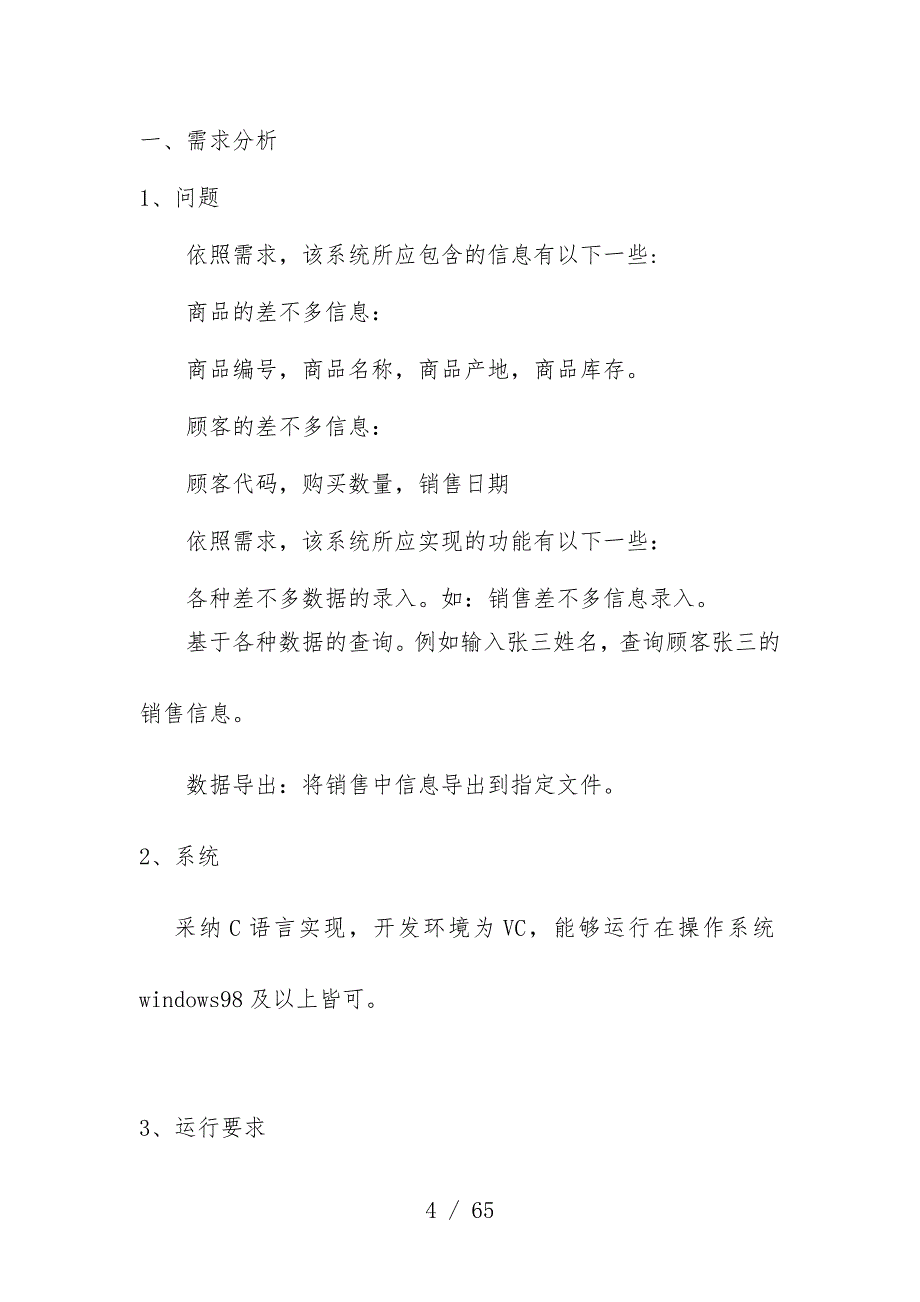 一、需求分析
1、问题
依照需求，该系统所应包含的信息有以下一些：
商品的差不多信息：
商品编号，商品名称，商品产地，商品库存。
顾客的差不多信息：
顾客代码，购买数量，销售日期
依照需求，该系统所应实现的功能有以下一些：
各种差不多数据的录入。如：销售差不多信息录入。
基于各种数据的查询。例如输入张三姓名，查询顾客张三的
销售信息。
数据导出：将销售中信息导出到指定文件。
2、系统
采纳 C 语言实现，开发环境为 VC，能够运行在操作系统
windows98 及以上皆可。
3、运行要求
4 / 65